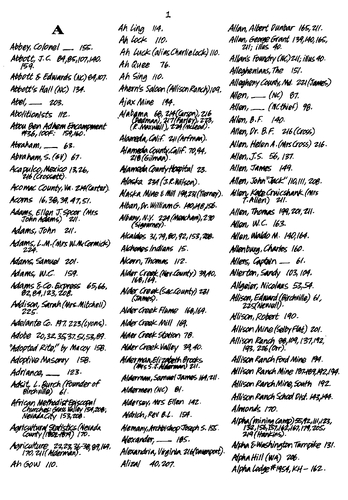 1
A
Abbey, Colonel ___ 155.
Abbott, J.C. 89,95,107,140,
159.
Abbott & Edwards (NC) 64,107.
Abbott's Hall (NC) 134.
Abel, ___ 203.
Abolitionists 112.
Abraham, ___ 63.
Abraham, S. (GV) 67.
Acapulco, Mexico 13,26,
216 (Corsett).
Accomac County, Va. 214 (Carter).
Acorns 16,38,39,47,51.
Adams, Ellen J. Spoor (Mrs
John Adams) 211.
Adams, John 211.
Adams, L.M. (Mrs W. McCormick)
224.
Adams, Samuel 201.
Adams, W.C. 159.
Adams & Co. Express 65,66,
82,89,123,208.
Addison, Sarah (Mrs. Mitchell)
225.
Adelante Co. 197,223 (Lyons).
Adobe 20,32,35,37,51,53,89.
"Adopted Rite" by Macoy 158.
Adoptive Masonry 158.
Adriance, ___ 123.
Adsit, L. Burch (Founder of
Birchville) 61.
African Methodist Episcopal
Churches: Grass Valley 154,208,
Nevada City 153,208.
Agricultural Statistics (Nevada
County 1860-1974) 170.
Agriculture 22,23,36-38,89,169,
170,211 (Alderman).
Ah Gow 110.
Ah Ling 114.
Ah Lock 110.
Ah Luck (alias Charlie Lock) 110.
Ah Quee 76.
Ah Sing 110.
Ahern's Saloon (Allison Ranch) 109.
Ajax Mine 194.
Alabama
Alameda, Calif. 211
Alameda County, Calif. 70,94,
218 (Gilman).
Alameda County Hospital 23.
Alaska 234 (J.R. Wilson).
Alaska Mine & Mill
Alban, Dr. William G. 140,148,156.
Albany, N.Y. 224 (Marchan), 230
Alcaldes 31,79,80,92,153,208.
Alchemus Indians 15.
Alcorn, Thomas 112.
Alder Creek (Nev. County) 39,40,
168,169.
Alder Creek (Sac. County) 221
(James).
Alder Creek Flume 168,169.
Alder Creek Mill 169.
Alder Creek Station 78.
Alder Creek Valley 39,40.
Alderman, Elizabeth Brooks
(Mrs S.E. Alderman) 211.
Alderman, Samuel James 169,211.
Alderman (NC) 61.
Aldersey, Mrs Ellen 142.
Aldrich, Rev B.L. 154.
Alemany, Archbishop Joseph S. 155.
Alexander, ___ 185.
Alexandria, Virginia 216 (Davenport).
Alizal 40,207.
Allan, Albert Dunbar 165,211.
Allan, George Grant 139,140,165,
211; illus 40.
Allan's Foundry (NC) 211; illus 40.
Alleghenians, The 151.
Alleghany County, Md. 221 (James)
Allen, ___ (NC) 87.
Allen, ___ (NC thief) 98.
Allen, B.F. 140.
Allen, Dr. B.F. 216 (Cross)
Allen, Helen A. (Mrs Cross) 216.
Allen, J.S. 56,137.
Allen, James 149.
Allen, John "Jack" 110,111,208.
Allen, Kate Cruikshank (Mrs
T. Allen) 211.
Allen, Thomas 199,201,211.
Allen, W.C. 163.
Allen, Waldo M. 140,164.
Allenburg, Charles 160.
Allers, Captain ___ 61.
Allerton, Sandy 103,109.
Allgeier, Nicolaus 53,54.
Allison, Edward (Birchville) 61,
225 (Newell).
Allison, Robert 190.
Allison Mine (Selby Flat) 201.
Allison Ranch 68,109,137,192,
193,226 (Orr).
Allison Ranch Ford Mine 194.
Allison Ranch Mine 187,189,192,194.
Allison Ranch Mine, South 192.
Allison Ranch School Dist. 143,144.
Almonds 170.
Alpha (mining camp)
Alpha & Washington Turnpike 131.
Alpha Hill (WA) 206.
Alpha Lodge #1954, KH — 162.